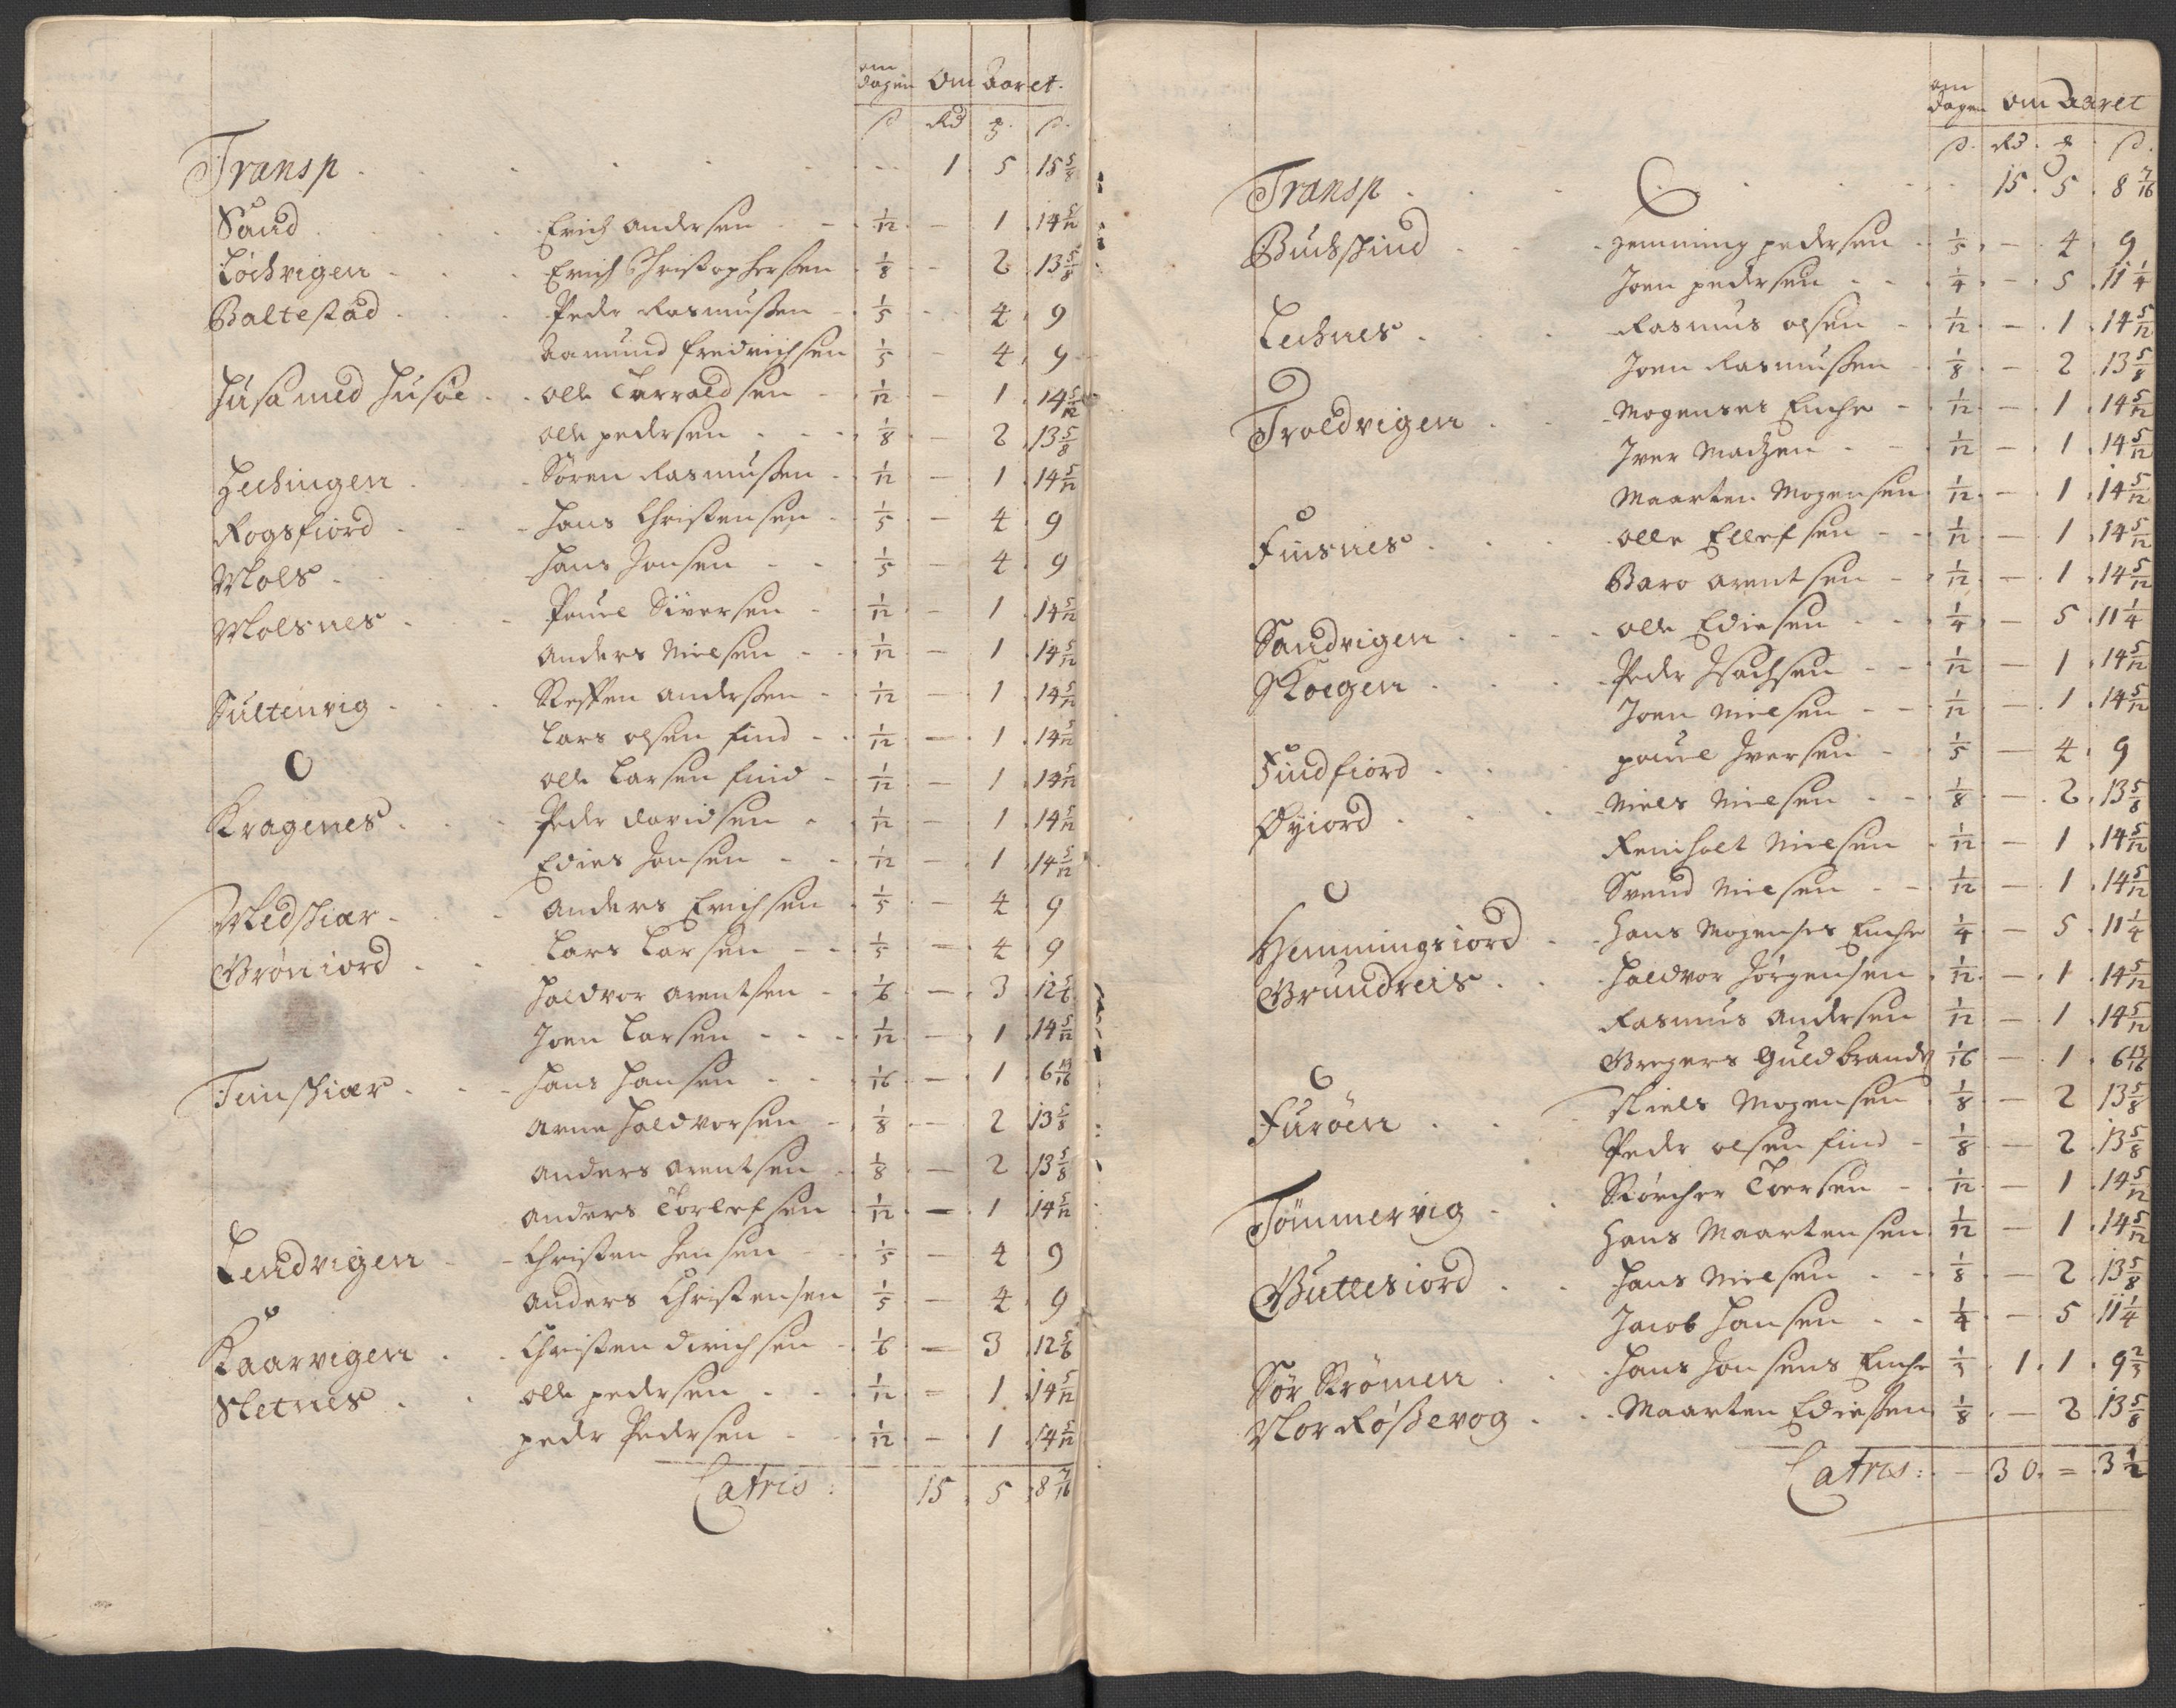 om
dagen Om Aaret.
ß Rd ℥ ß.
Transp . . . . . . . 1. 5. 15 5/8
Sand . . . Erich Andersen - - 1/12 - 1. 14 5/12
Löchvigen - . . Erich Christophersen 1/8 - 2. 13 5/8
Baltestad . . . Peder Rasmussen - 1/5 - 4. 9
Aamund Fredrichsen 1/5 - 4. 9
Husa med Husöe . . Olle Tarraldsen - 1/12 - 1. 14 5/12
Olle pedersen . . . 1/8 - 2. 13 5/8
Hechingen . . Sören Rasmussen - 1/12 - 1. 14 5/12
Rogsfiord - . . Hans Christensen - 1/5 - 4. 9
Mols . . . Hans Jonsen - - 1/5 - 4. 9
Molsnes . . . Pouel Siversen - 1/12 - 1. 14 5/12
Anders Nielsen - - 1/12 - 1. 14 5/12
Sultenvig . . . Steffen Andersen - 1/12 - 1. 14 5/12
Lars olsen find - . 1/12 - 1. 14 5/12
Olle Larsen find - 1/12 - 1. 14 5/12
Kragenes . . . Peder Davidsen . 1/12 - 1. 14 5/12
Edies Jonsen - - 1/12 - 1. 14 5/12
Medskiær - . . Anders Erichsen . 1/5 - 4. 9
Grøniord . . Lars Larsen - - 1/5 - 4. 9
Haldvor Arentsen - 1/6 - 3. 12 5/6
Joen Larsen - - - 1/12 - 1. 14 5/12
Tenskiær . . . Hans Hansen . . 1/16 - 1. 6 13/16
Arne Haldvorsen - 1/8 - 2 13 5/8
Anders Arentsen . 1/8 - 2. 13 5/8
Anders Torlefsen . 1/12 - 1 14 5/12
Lendvigen - . Christen Jensen - - 1/5 - 4 9
Anders Christensen 1/5 - 4. 9
Kaarvigen . . Christen Dirichsen - 1/6 - 3 12 5/6
Sletnes . . Olle pedersen . . . 1/12 = 1. 14 5/12
peder Pedersen - . 1/12 - 1. 14 5/12
Latris : 15. 5. 8 7/16
om
dagen om Aaret
ß. Rd. ℥. ß.
Transp . . . . . . 15. 5. 8 7/16
Buchskind . . . Hemming pedersen . 1/5 - 4. 9
Joen pedersen . - 1/4 - 5. 11 1/4
Lechnes . . . Rasmus olsen - 1/12 - 1. 14 5/12
Joen Rasmussen - 1/8 - 2. 13 5/8
Troldvigen . . Mogenses Enche - 1/12 - 1. 14 5/12
Iver Madzen . - 1/12 - 1. 14 5/12
Maarten Mogensen 1/12 - 1. 14 5/12
Finsnes . . . Olle Ellefsen - - 1/12 - 1. 14 5/12
Baro Arentsen - 1/12 - 1. 14 5/12
Sandvigen . . . Olle Ediesen - - 1/4 - 5. 11 1/4
Skogen . . . Peder Isachsen - - 1/12 - 1. 14 5/12
Joen Nielsen - - 1/12 - 1. 14 5/12
Findfiord . . . pouel Iversen - 1/5 - 4. 9
Øyiord . . . Niels Nielsen - - 1/8 - 2. 13 5/8
Reinholt Nielsen . 1/12 - 1. 14 5/12
Svend Nielsen - - 1/12 - 1. 14 5/12
Hemmingsiord . Hans Mogenses Enche 1/4 - 5. 11 1/4
Grundreis . . Haldvor Jörgensen . 1/12 - 1. 14 5/12
Rasmus Andersen 1/12 - 1. 14 5/12
Gregers Guldbrands 1/16 - 1. 6 13/16
Furöen . . . Niels Mogensen 1/8 - 2 13 5/8
Peder olsen find - 1/8 - 2. 13 5/8
Tömmervig . . Störcher Torsen - 1/12 - 1. 14 5/12
Hans Maartensen 1/12 - 1. 14 5/12
Guttesiord . . Hans Nielsen . - 1/8 - 2. 13 5/8
Jacob Hansen . . 1/4 - 5. 11 1/4
Sör Strömen . . Hans Jonsens Enche 1/3. 1. 1. 9 2/3
Nor Rössevog . . Maarten Ediessen 1/8 - 2 13 5/8
Latris : - 30. = 3 1/2